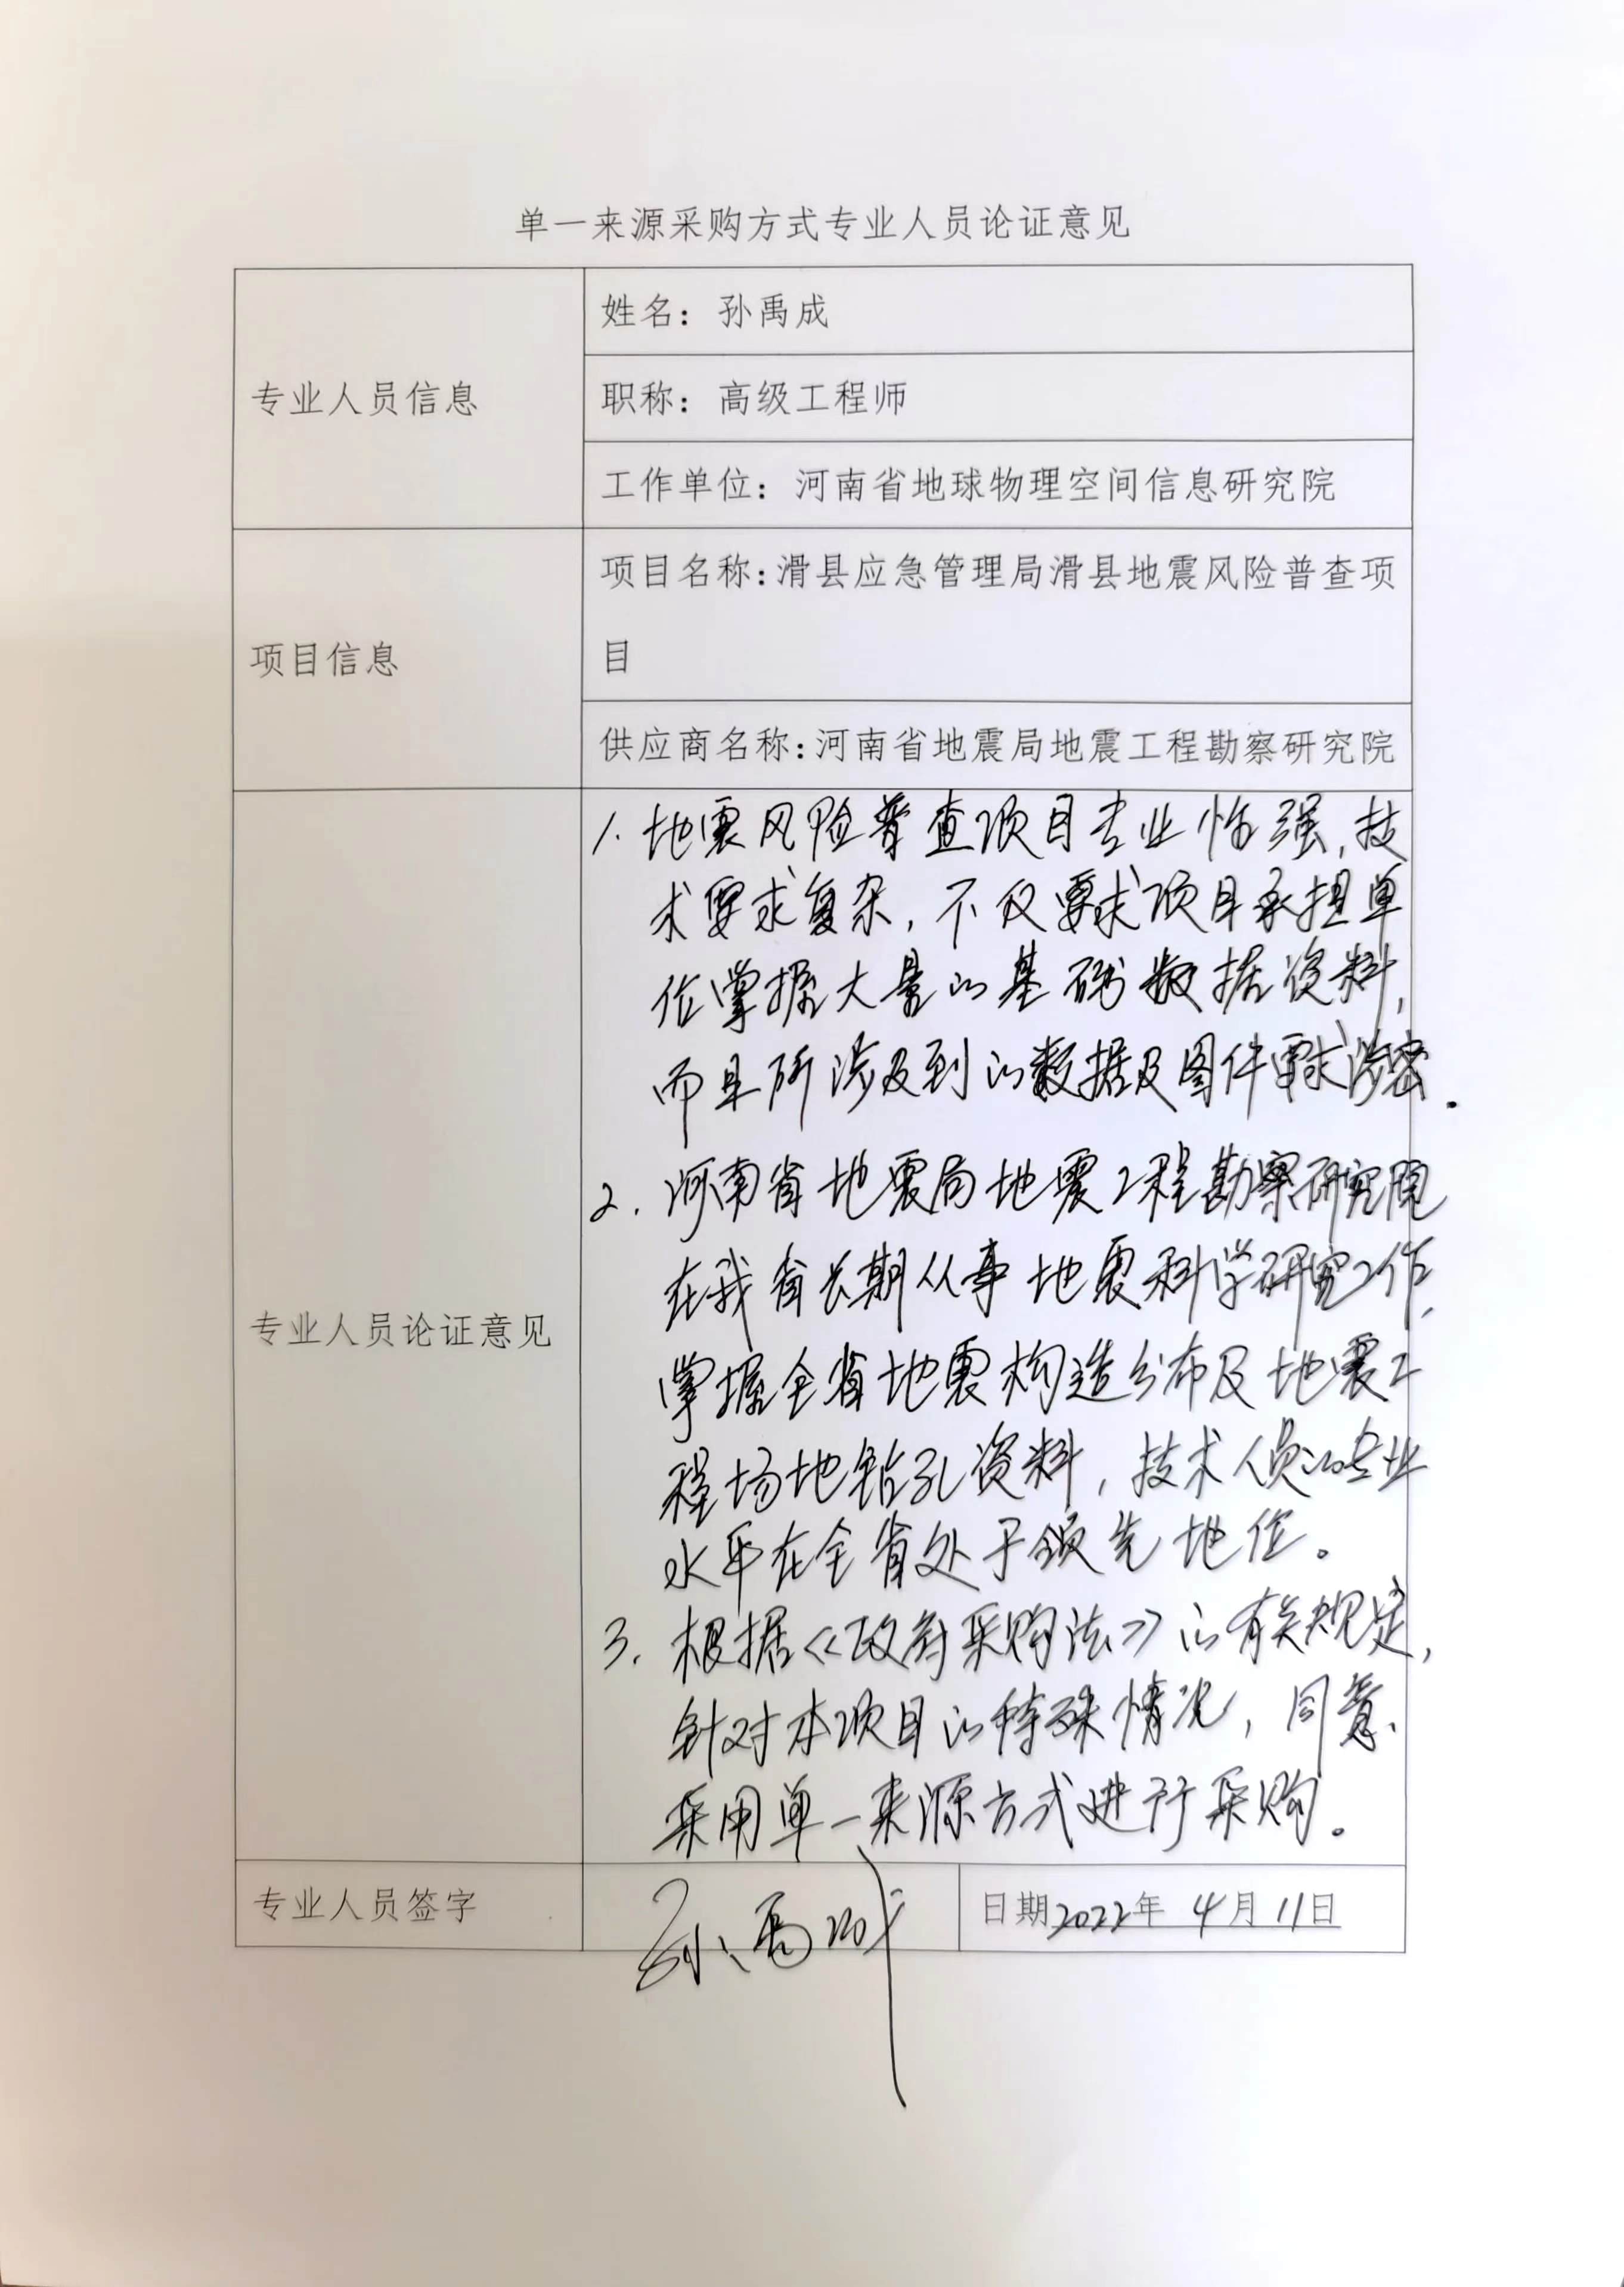 单一来源采购方式专业人员论证意见
专业人员信息
姓名：孙禹成
职称：高级工程师
工作单位：河南省地球物理空间信息研究院
项目信息
项目名称:滑县应急管理局滑县地震风险普查项
目
供应商名称:河南省地震局地震工程勘察研究院
专业人员论证意见
1.地震风险普查项目专业性强,技
术要求复杂,不仅要求项目承担单
位掌握大量的基础数据资料,
而且所涉及到的数据及图件要求涉密.
2.河南省地震局地震工程勘察研究院
在我省长期从事地震科学研究工作,
掌握全省地震构造分布及地震工
程场地钻孔资料,技术人员的专业
水平在全省处于领先地位。
3.根据《政府采购法》的有关规定,
针对本项目的特殊情况,同意
采用单一来源方式进行采购。
专业人员签字
孙禹成
日期2022年 4月11日